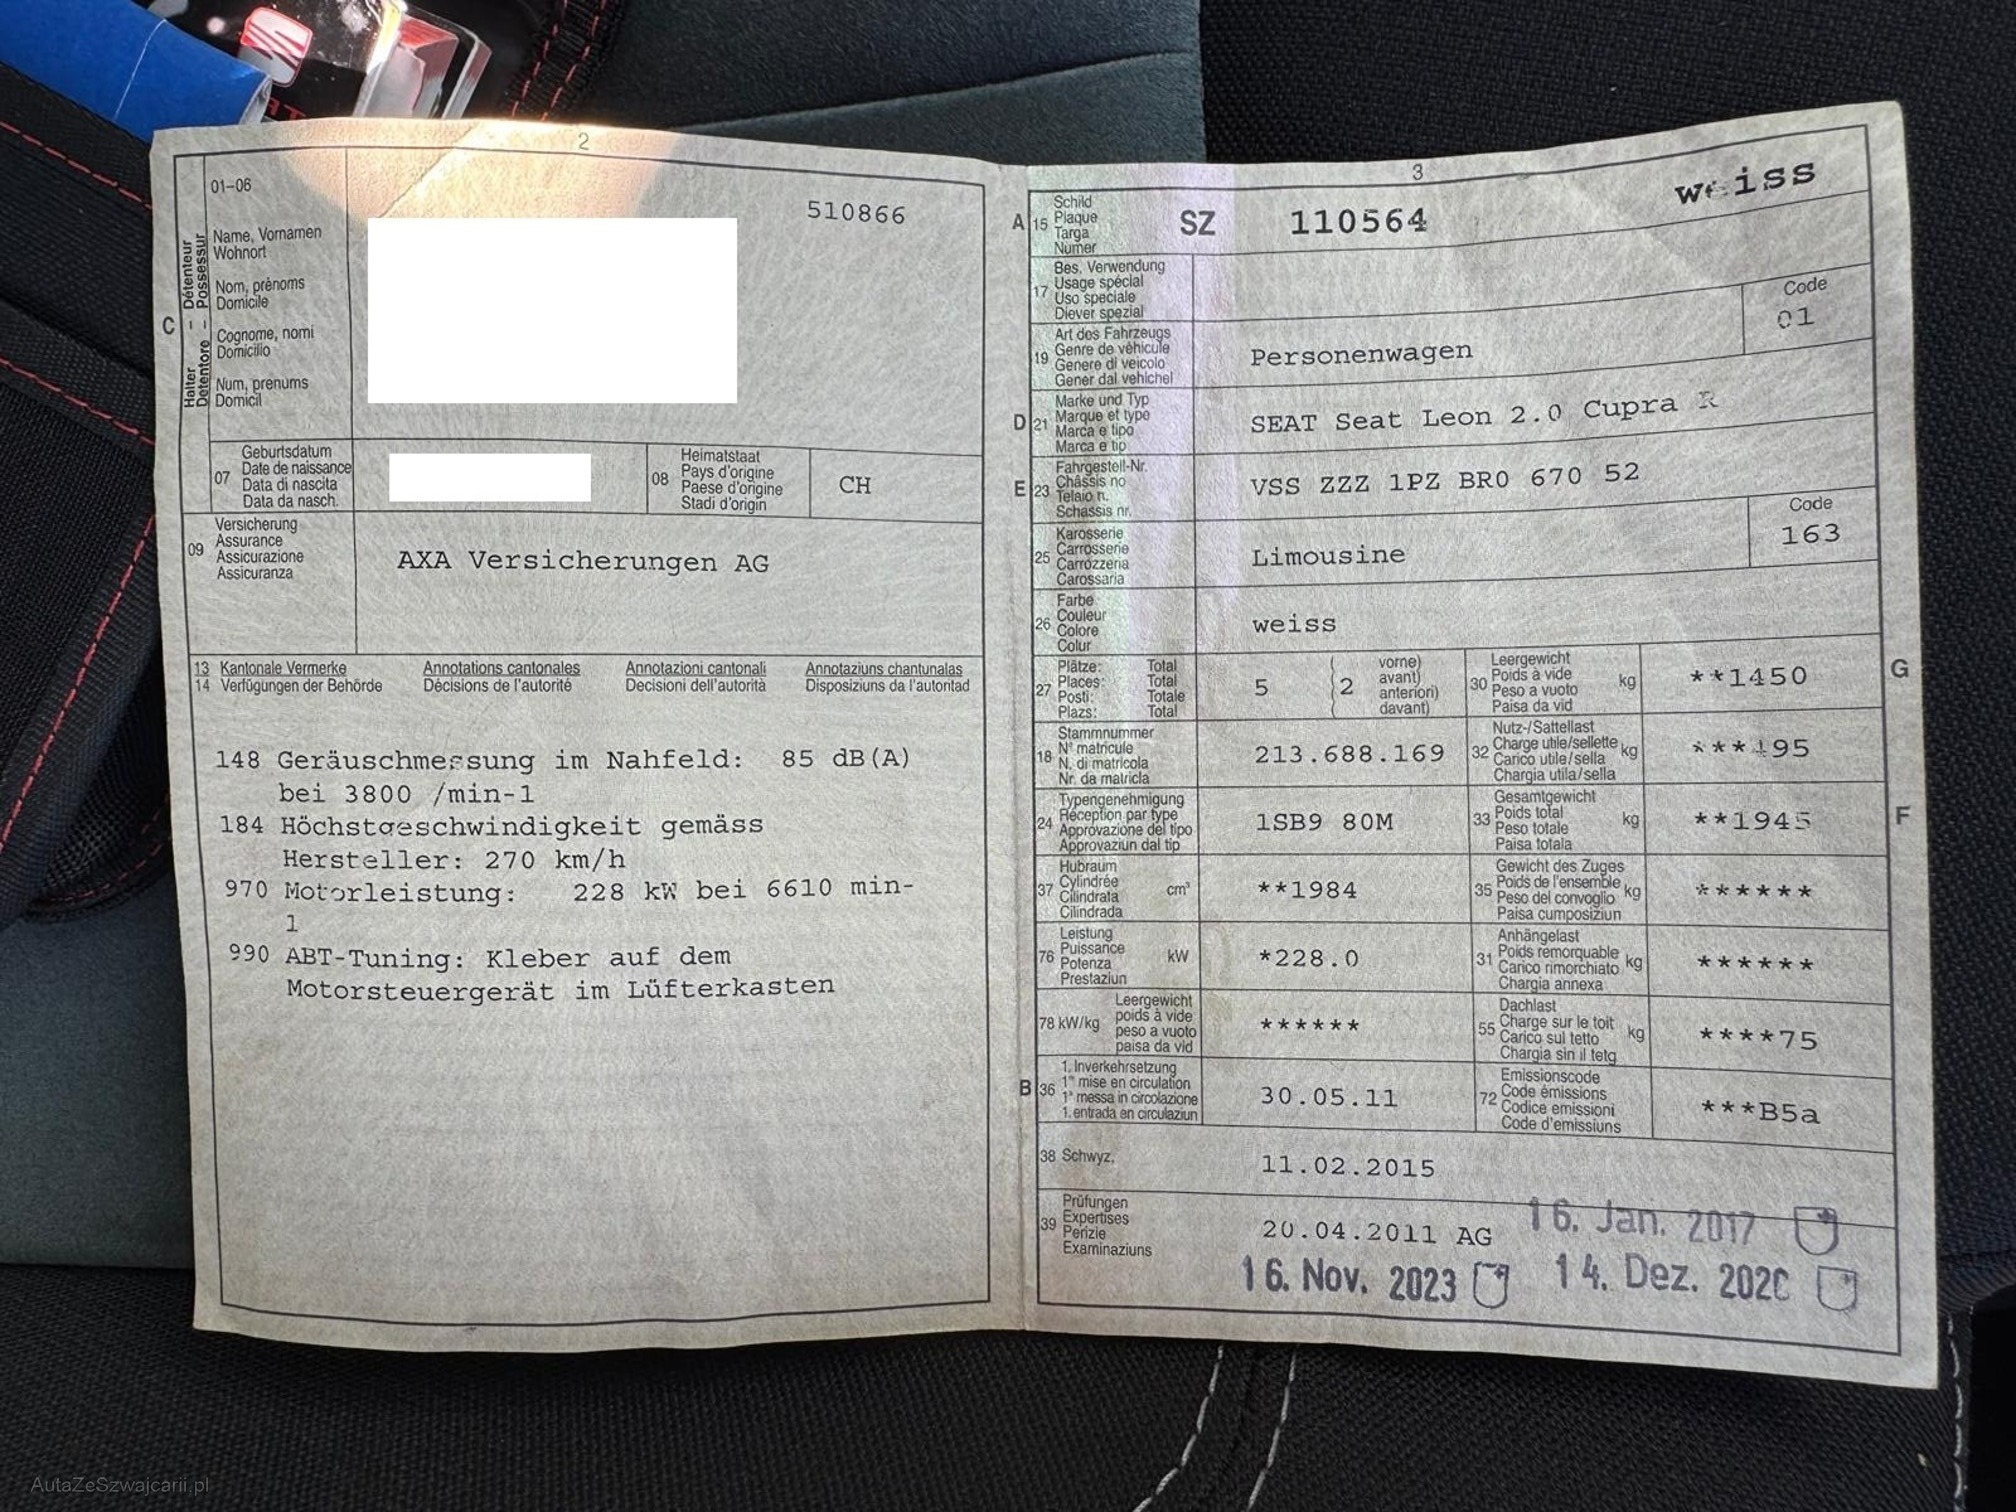 2
01-06
510866
C
Halter - Détenteur
Detentore - Possessur
Name, Vornamen
Wohnort
Nom, prénoms
Domicile
Cognome, nomi
Domicilio
Num, prenums
Domicil
07
Geburtsdatum
Date de naissance
Data di nascita
Data da nasch.
08
Heimatstaat
Pays d'origine
Paese d'origine
Stadi d'origin
CH
09
Versicherung
Assurance
Assicurazione
Assicuranza
AXA Versicherungen AG
13 Kantonale Vermerke Annotations cantonales Annotazioni cantonali Annotaziuns chantunalas
14 Verfügungen der Behörde Décisions de l'autorité Decisioni dell'autorità Disposiziuns da l'autoritad
148 Geräuschmessung im Nahfeld: 85 dB(A)
bei 3800 /min-1
184 Höchstgeschwindigkeit gemäss
Hersteller: 270 km/h
970 Motorleistung: 228 kW bei 6610 min-
1
990 ABT-Tuning: Kleber auf dem
Motorsteuergerät im Lüfterkasten
3
weiss
A 15
Schild
Plaque
Targa
Numer
SZ 110564
17
Bes. Verwendung
Usage spécial
Uso speciale
Diever spezial
19
Art des Fahrzeugs
Genre de véhicule
Genere di veicolo
Gener dal vehichel
Personenwagen
Code
01
D 21
Marke und Typ
Marque et type
Marca e tipo
Marca e tip
SEAT Seat Leon 2.0 Cupra R
E 23
Fahrgestell-Nr.
Châssis no
Telaio n.
Schassis nr.
VSS ZZZ 1PZ BR0 670 52
25
Karosserie
Carrosserie
Carrozzeria
Carossaria
Limousine
Code
163
26
Farbe
Couleur
Colore
Colur
weiss
27
Plätze: Total
Places: Total
Posti: Totale
Plazs: Total
5
2
vorne)
avant)
anteriori)
davant)
30
Leergewicht
Poids à vide
Peso a vuoto
Paisa da vid
kg
**1450
G
18
Stammnummer
N° matricule
N. di matricola
Nr. da matricla
213.688.169
32
Nutz-/Sattellast
Charge utile/sellette
Carico utile/sella
Chargia utila/sella
kg
24
Typengenehmigung
Réception par type
Approvazione del tipo
Approvaziun dal tip
1SB9 80M
33
Gesamtgewicht
Poids total
Peso totale
Paisa totala
kg
**1945
F
37
Hubraum
Cylindrée
Cilindrata
Cilindrada
cm³
**1984
35
Gewicht des Zuges
Poids de l'ensemble
Peso del convoglio
Paisa cumposiziun
kg
******
76
Leistung
Puissance
Potenza
Prestaziun
kW
*228.0
31
Anhängelast
Poids remorquable
Carico rimorchiato
Chargia annexa
kg
******
78 kW/kg
Leergewicht
poids à vide
peso a vuoto
paisa da vid
******
55
Dachlast
Charge sur le toit
Carico sul tetto
Chargia sin il tetg
kg
****75
B 36
1. Inverkehrsetzung
1re mise en circulation
1a messa in circolazione
1. entrada en circulaziun
30.05.11
72
Emissionscode
Code émissions
Codice emissioni
Code d'emissiuns
***B5a
38 Schwyz,
11.02.2015
39
Prüfungen
Expertises
Perizie
Examinaziuns
20.04.2011 AG
16. Jan. 2017
16. Nov. 2023
14. Dez. 2020
AutaZeSzwajcarii.pl